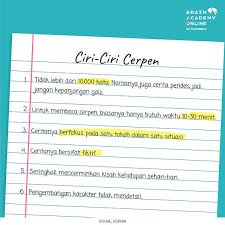 BRAIN
ACADEMY
ONLINE
Ciri-Ciri Cerpen
1. Tidak lebih dari 10.000 kata. Namanya juga cerita pendek, jadi
jangan kepanjangan gais.
2. Untuk membaca cerpen, biasanya hanya butuh waktu 10-30 menit.
3. Ceritanya berfokus pada satu tokoh dalam satu situasi.
4. Ceritanya bersifat fiktif.
5. Seringkali mencerminkan kisah kehidupan sehari-hari.
6. Pengembangan karakter tidak mendetail.